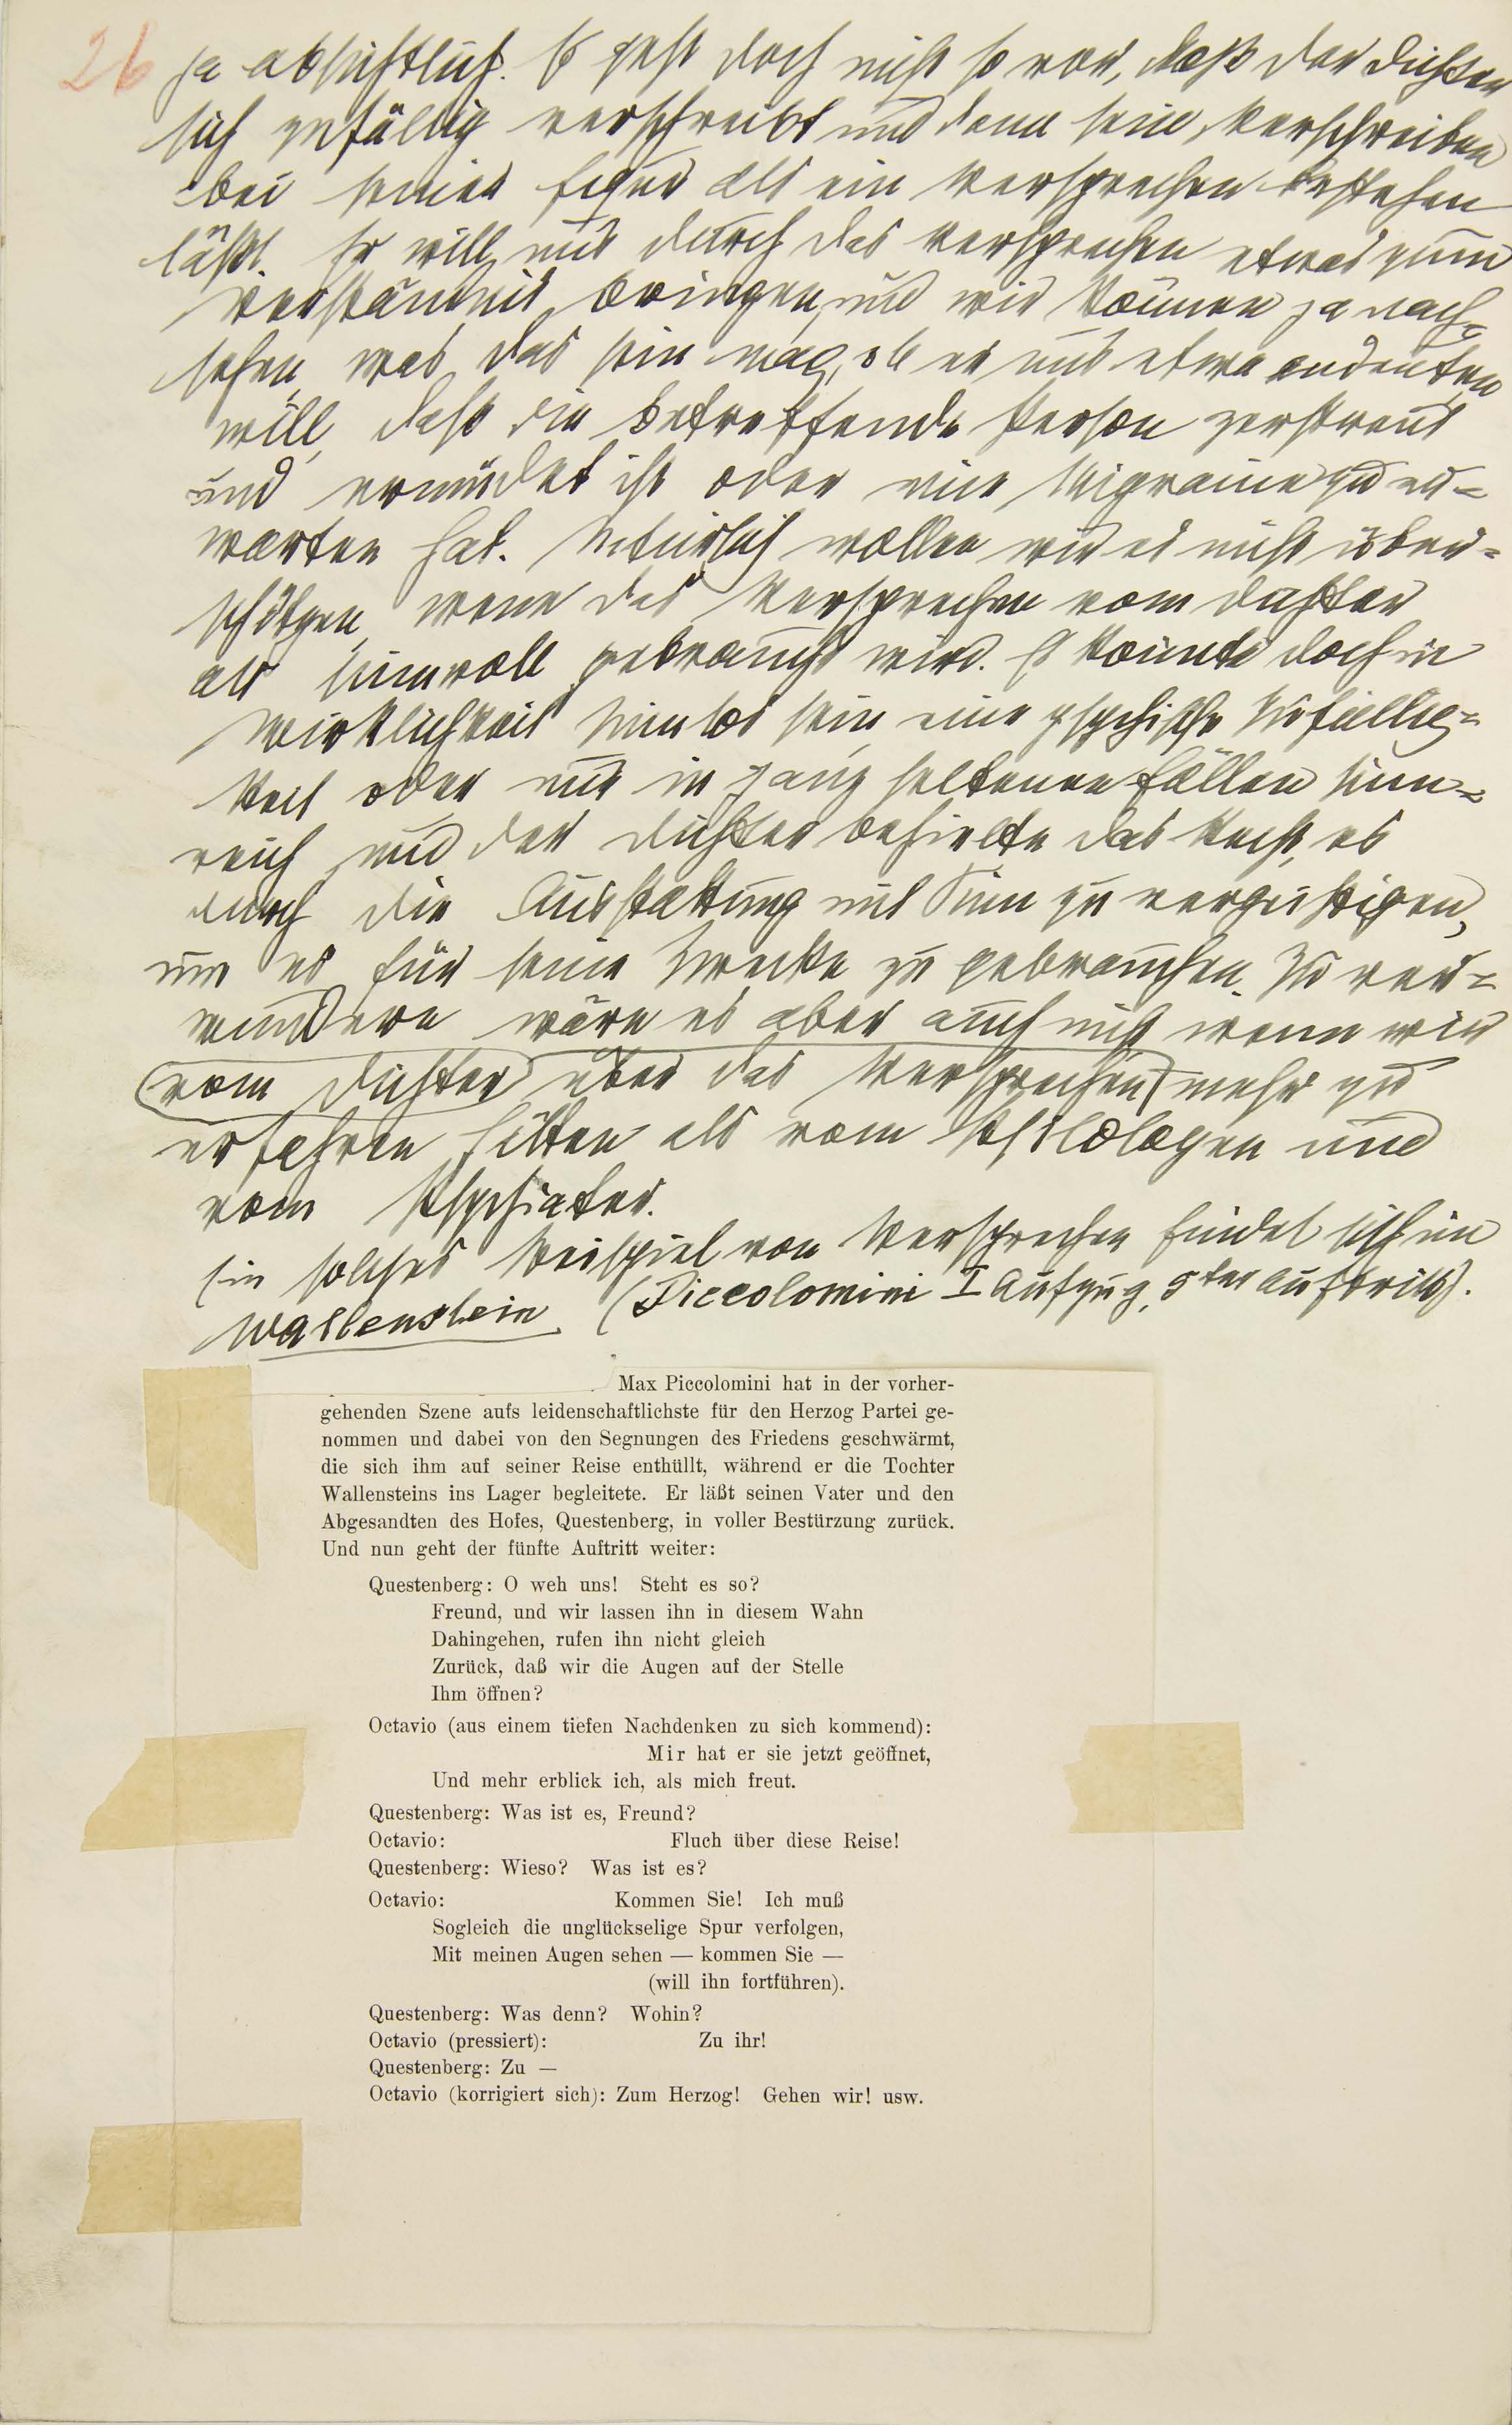 26 ja absichtlich. Es geht doch nicht so vor, daß der Dichter
sich zufällig verschreibt und dann sein Verschreiben
bei seiner Figur als ein Versprechen bestehen
läßt. Er will uns durch das Versprechen etwas zum
Verständnis bringen, und wir können ja nach=
sehen, was das sein mag, ob er uns etwa andeuten
will, daß die betreffende Person zerstreut
und ermüdet ist oder eine Migraine zu er=
warten hat. Natürlich wollen wir es nicht über=
schätzen, wenn das Versprechen vom Dichter
als sinnvoll gebraucht wird. Es könnte doch in
Wirklichkeit sinnlos sein, eine psychische Zufällig=
keit oder nur in ganz seltenen Fällen sinn=
reich und der Dichter behielte das Recht, es
durch die Ausstattung mit Sinn zu vergeistigen,
um es für seine Zwecke zu gebrauchen. Zu ver=
wundern wäre es aber auch nicht wenn wir
vom Dichter über das Versprechen mehr zu
erfahren hätten als vom Philologen und
vom Psychiater.
Ein solches Beispiel von Versprechen findet sich im
Wallenstein (Piccolomini I Aufzug, 5ter Auftritt).
Max Piccolomini hat in der vorher-
gehenden Szene aufs leidenschaftlichste für den Herzog Partei ge-
nommen und dabei von den Segnungen des Friedens geschwärmt,
die sich ihm auf seiner Reise enthüllt, während er die Tochter
Wallensteins ins Lager begleitete. Er läßt seinen Vater und den
Abgesandten des Hofes, Questenberg, in voller Bestürzung zurück.
Und nun geht der fünfte Auftritt weiter:
Questenberg: O weh uns! Steht es so?
Freund, und wir lassen ihn in diesem Wahn
Dahingehen, rufen ihn nicht gleich
Zurück, daß wir die Augen auf der Stelle
Ihm öffnen?
Octavio (aus einem tiefen Nachdenken zu sich kommend):
Mir hat er sie jetzt geöffnet,
Und mehr erblick ich, als mich freut.
Questenberg: Was ist es, Freund?
Octavio: Fluch über diese Reise!
Questenberg: Wieso? Was ist es?
Octavio: Kommen Sie! Ich muß
Sogleich die unglückselige Spur verfolgen,
Mit meinen Augen sehen — kommen Sie —
(will ihn fortführen).
Questenberg: Was denn? Wohin?
Octavio (pressiert): Zu ihr!
Questenberg: Zu —
Octavio (korrigiert sich): Zum Herzog! Gehen wir! usw.